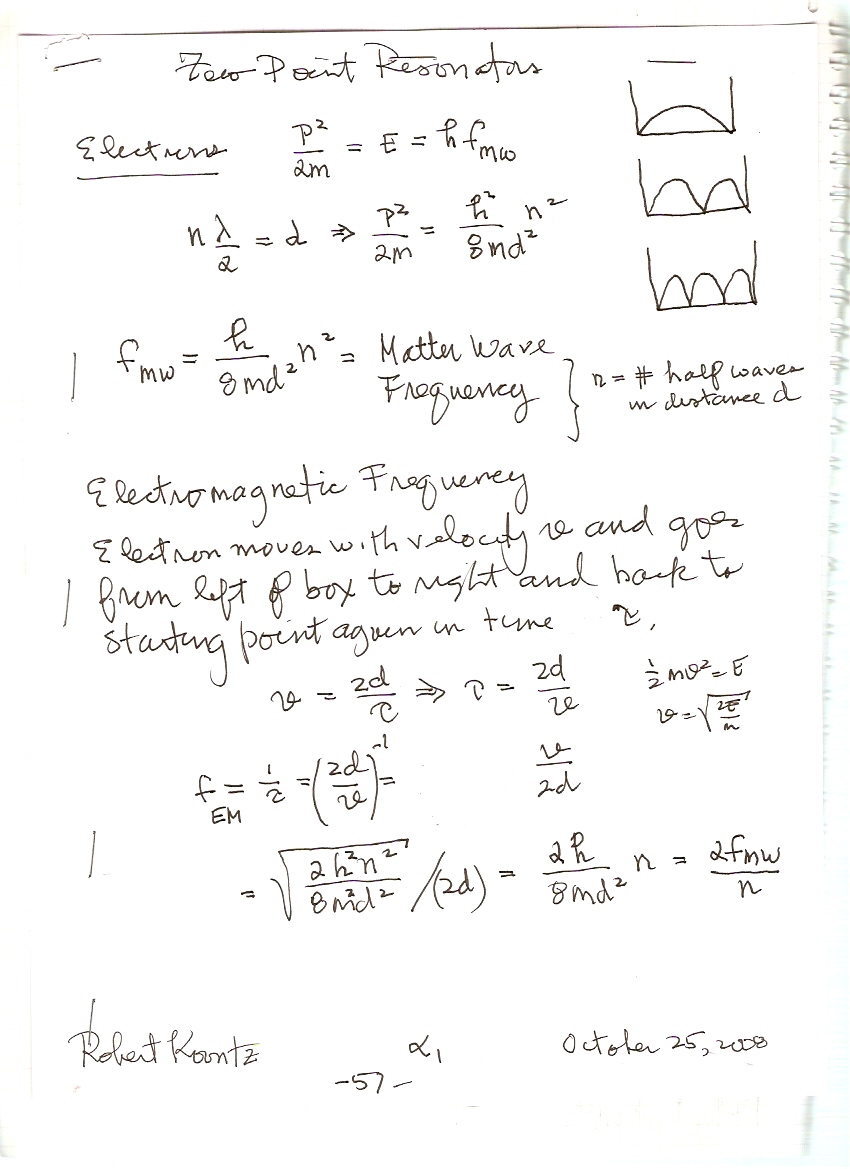 Zero Point Resonators
Electrons p²/2m = E = h f_mw
n λ/2 = d ⇒ p²/2m = h²/8md² n²
f_mw = h/8md² n² = Matter Wave Frequency } n = # half waves in distance d
Electromagnetic Frequency
Electron moves with velocity v and goes
from left of box to right and back to
starting point again in time τ.
v = 2d/τ ⇒ τ = 2d/v ½mv² = E
v = √(2E/m)
f_EM = 1/τ = (2d/v)⁻¹ = v/2d
= √(2h²n²/8m²d²) /(2d) = 2h/8md² n = 2f_mw/n
Robert Koontz α₁ October 25, 2008
-57-